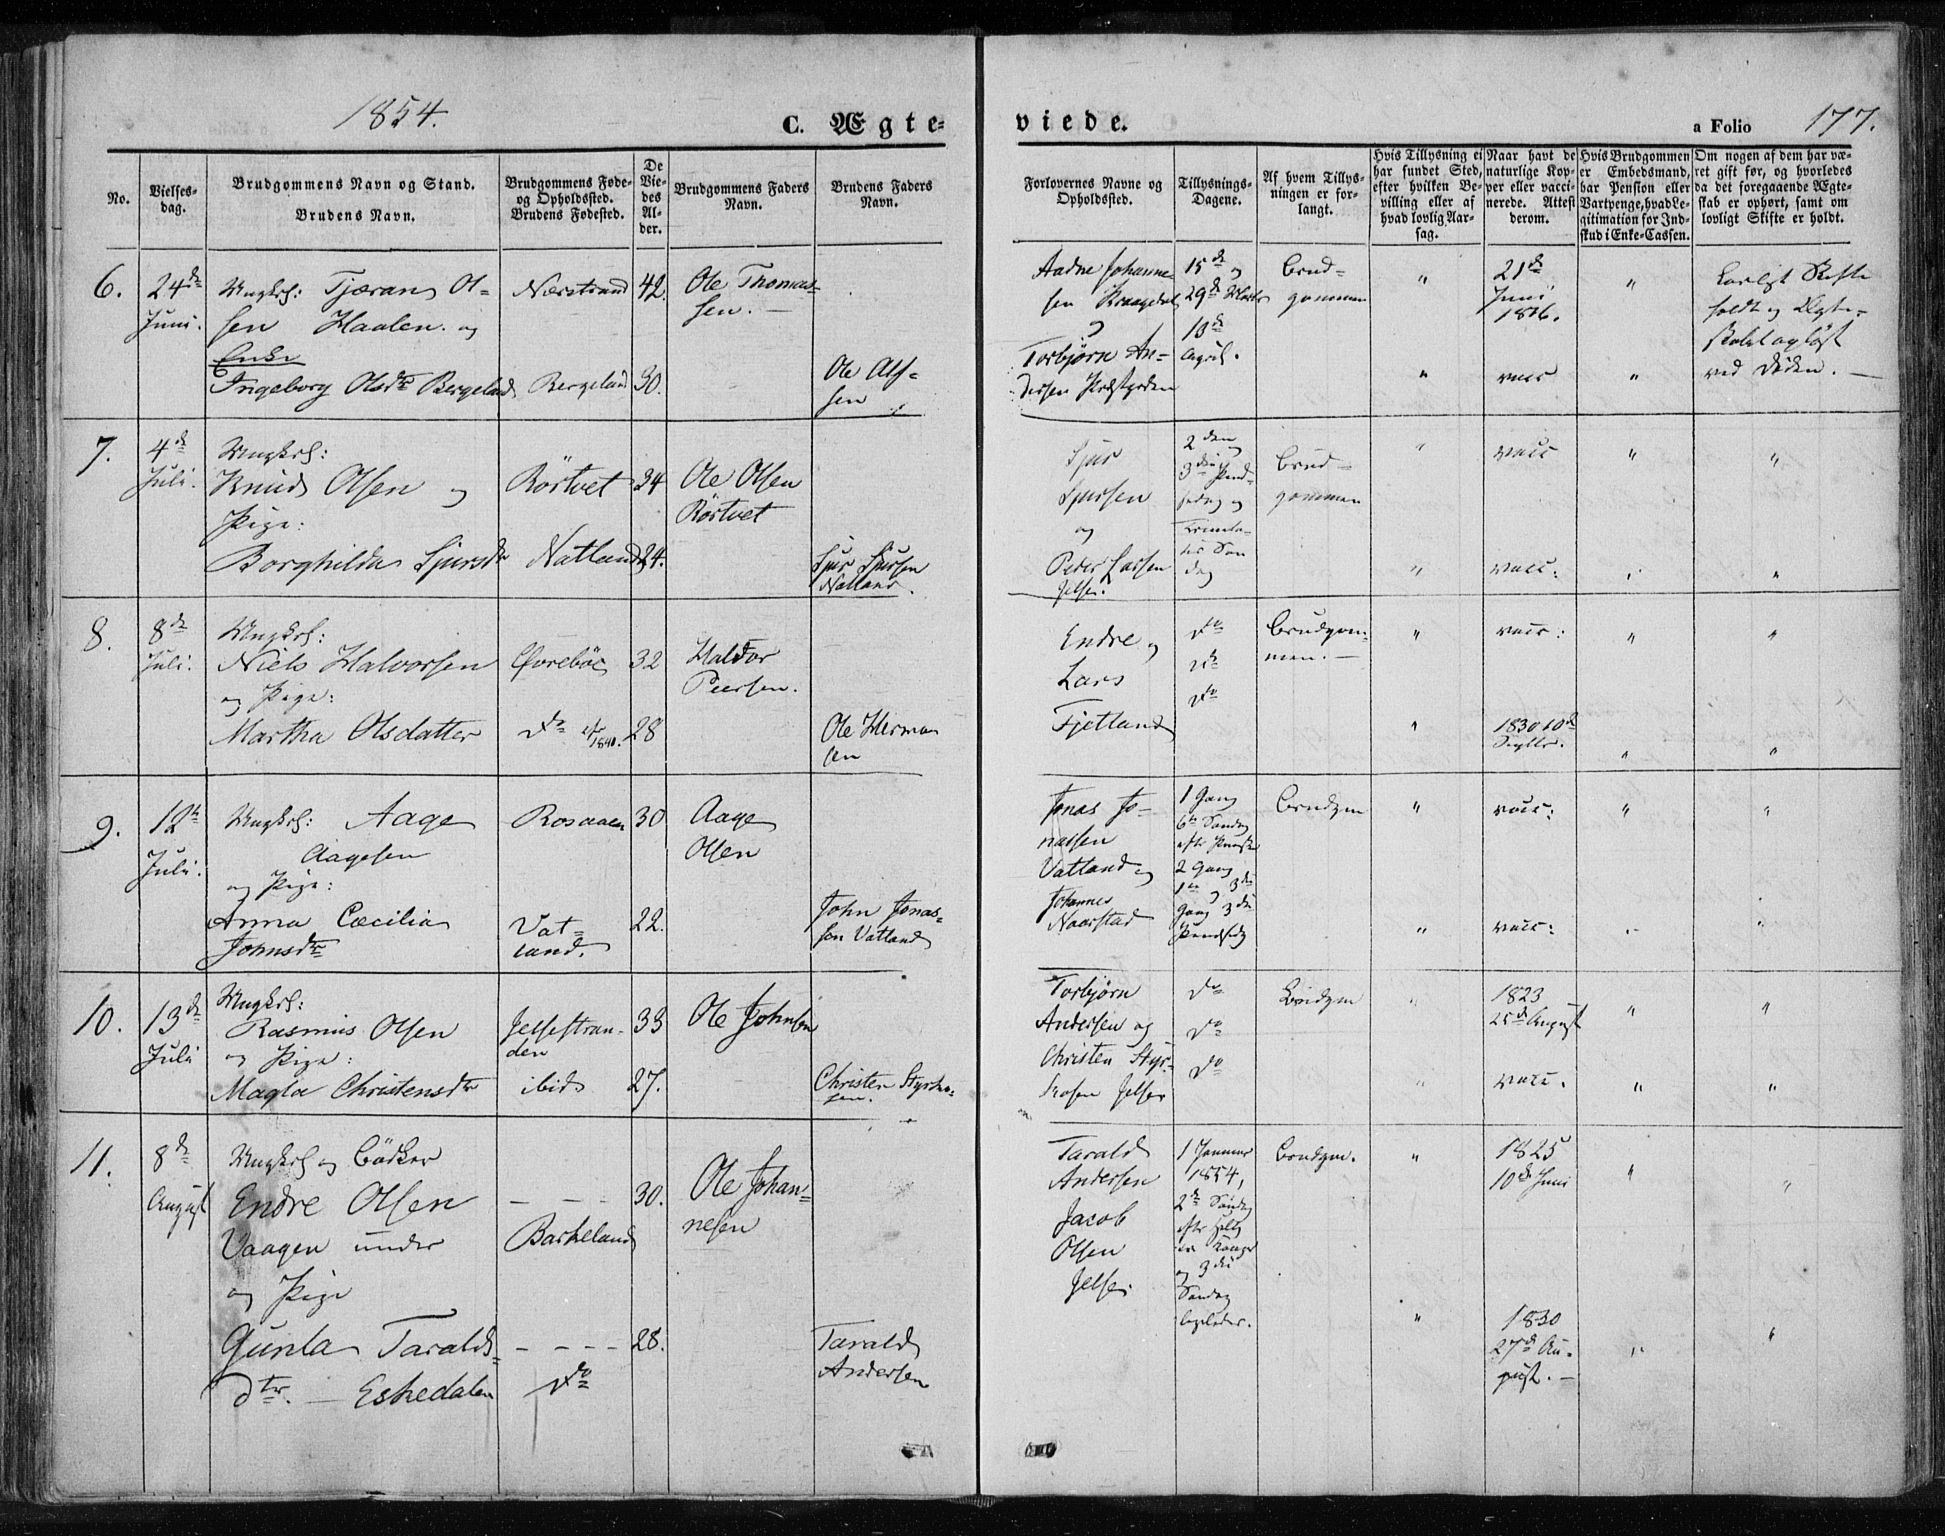 1854.
C. Ægte-
viede.
a Folio 177.
No.
Vielses-
dag.
Brudgommens Navn og Stand.
Brudens Navn.
Brudgommens Føde-
og Opholdssted.
Brudens Fødested.
De
Vie-
des
Al-
der.
Brudgommens Faders
Navn.
Brudens Faders
Navn.
Forlovernes Navne og
Opholdssted.
Tillysnings-
Dagene.
Af hvem Tillys-
ningen er for-
langt.
Hvis Tillysning ei
har fundet Sted,
efter hvilken Be-
villing eller af
hvad lovlig Aar-
sag.
Naar havt de
naturlige Kop-
per eller vacci-
nerede. Attest
derom.
Hvis Brudgommen
er Embedsmand,
har Pension eller
Vartpenge, hvad Le-
gitimation for Ind-
skud i Enke-Cassen.
Om nogen af dem har væ-
ret gift før, og hvorledes
da det foregaaende Ægte-
skab er ophørt, samt om
lovligt Skifte er holdt.
6.
24de
Juni.
Ungkrl: Tjæran Ol-
sen Haalen. og
Enke
Ingeborg Olsdtr Bergeland
Nærstrand
Bergeland
42.
30.
Ole Thomas-
sen.
Ole Ols-
sen
Aadne Johanne-
sen
Torbjørn An-
dersen Præstgarden
15de og
29de Marts
10de
April.
Brud-
gommen
"
"
21de
Juni
1816.
vacc
"
"
Lovligt Skifte
holdt og Ægte-
skabet opløst
ved Døden.
7.
4de
Juli.
Ungkrl:
Knud Olsen og
Pige:
Borghilda Sjursdtr
Rörtvet
Natland
34
24.
Ole Olsen
Rörtvet
Sjur Sjursen
Natland.
Sjur
Sjursen
og
Peder Larsen
Jelse.
2den
3die Pind-
sedag og
Trinita-
tis Søn
dag
Brud-
gommen
"
"
vacc
vacc:
"
"
"
8.
8de
Juli.
Ungkrl:
Niels Halvorsen
og Pige:
Martha Olsdatter
Øvrebøe
do
1840.
32
28
Haldor
Peersen.
Ole Herman
sen
Endre og
Lars
Fjetland
do
do
do
Brudgom-
men.
"
"
vacc:
1830 10de
Septbr.
"
"
"
"
9.
12te
Juli.
Ungkrl: Aage
Aagesen
og Pige:
Anna Cæcilia
Johnsdtr
Rosaaen
Vat-
land.
30
22.
Aage
Olsen
John Jonas-
sen Vatland
Jonas Jo-
nassen
Vatland og
Johannes
Naarstad
1 Gang
6te Søndag
efter Pinse
2 Gang
1te og 3die
Gang 3die
Pindsedag
Brudgm
"
"
vacc:
vacc:
"
"
"
10.
13de
Juli
Ungkrl:
Rasmus Olsen
og Pige:
Magla Christensdtr
Jelsestran-
den
ibid
33
27.
Ole Johnsen
Christen Styrka-
sen.
Torbjørn
Andersen og
Christen Styr-
kasen Jelse
do
do
do
Brudgm
"
1823
25de August
vacc.
"
"
"
"
11.
8de
August
Ungkrl og Bödker
Endre Olsen
Vaagen under
og Pige
Gunla Taralds-
dtr. Eskedalen
Barkeland
do
30.
28.
Ole Johan-
nesen
Tarald
Andersen
Tarald
Andersen
Jacob
Olsen
Jelse
1 Januar
1854,
2de Søndag
efter Hellig
tre Konger
og 3die
Søndag
ligeledes.
Brudgm.
"
"
1825
10de Juni
1830
27de Au-
gust.
"
"
"
"